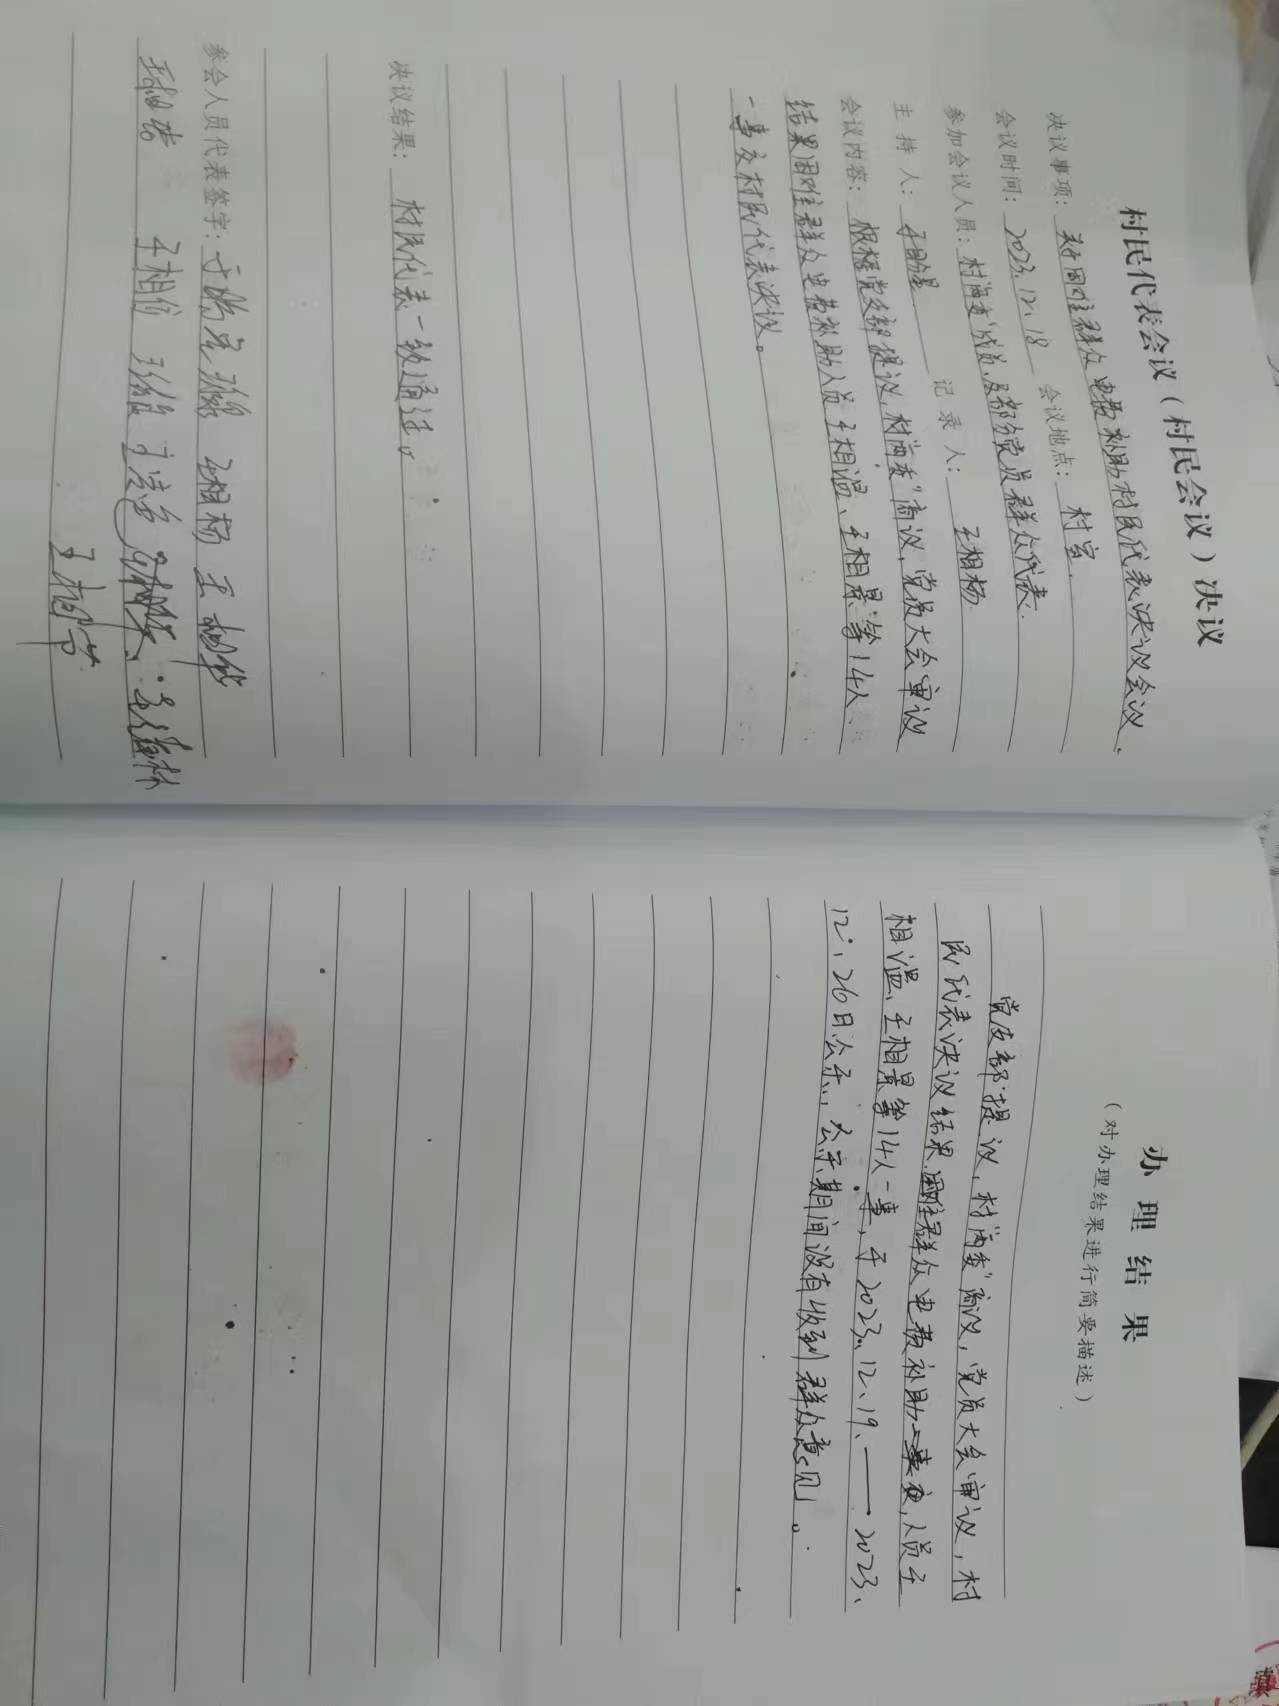 村民代表会议（村民会议）决议
决议事项：关于困难群众电费补助村民代表决议会议.
会议时间：2023.12.18 会议地点：村室.
参加会议人员：村两委成员及部分党员群众代表.
主持人： 记录人：王相杨
会议内容：根据党支部提议，村“两委”商议，党员大会审议
结果困难群众电费补助人员王相温、王相景等14人
一事交村民代表决议。
决议结果：村民代表一致通过。
参会人员代表签字： 王相杨 王相华
王相伯
办理结果
（对办理结果进行简要描述）
党支部提议，村“两委”商议，党员大会审议，村
民代表决议结果.困难群众电费补助 人员王
相温、王相景等14人一事，于2023.12.19.——2023.
12.26日公示，公示期间没有收到群众意见。